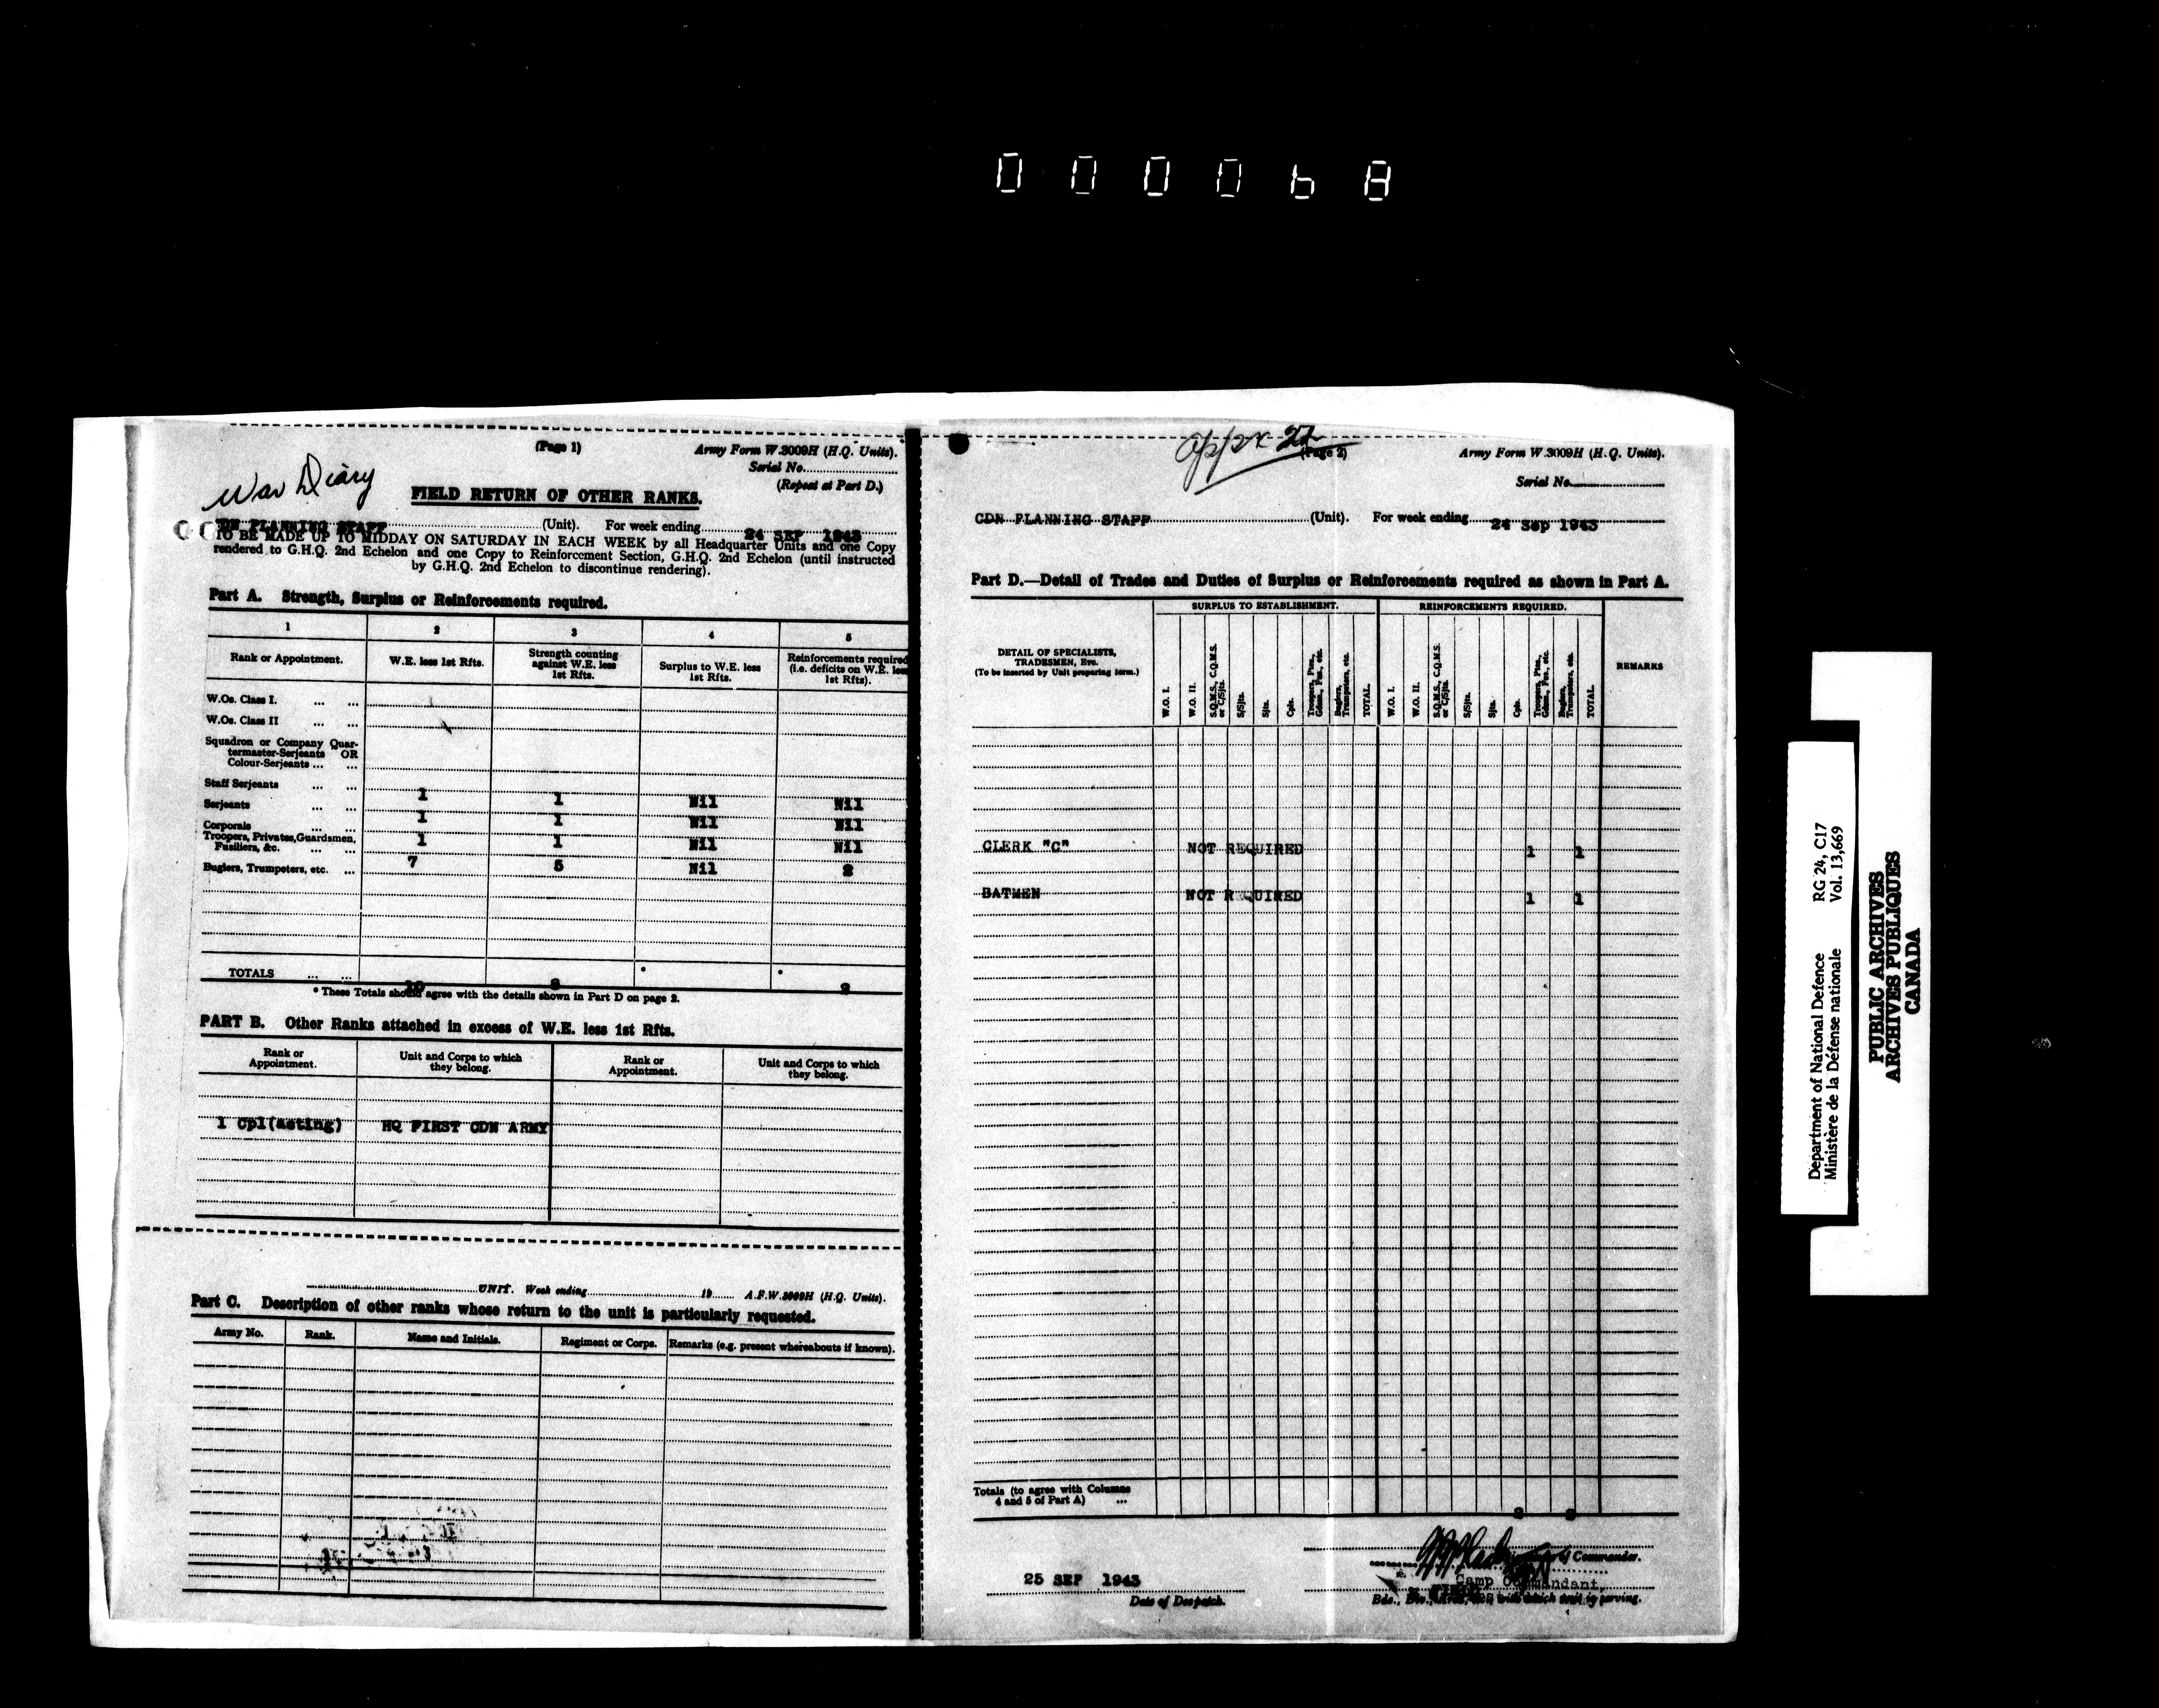 0 0 0 0 6 8
War Diary
(Page 1)
Army Form W.3009H (H.Q. Units).
Serial No.
(Repeat at Part D.)
FIELD RETURN OF OTHER RANKS.
DN PLANNING STAFF (Unit). For week ending 24 SEP 1943
TO BE MADE UP TO MIDDAY ON SATURDAY IN EACH WEEK by all Headquarter Units and one Copy
rendered to G.H.Q. 2nd Echelon and one Copy to Reinforcement Section, G.H.Q. 2nd Echelon (until instructed
by G.H.Q. 2nd Echelon to discontinue rendering).
Part A. Strength, Surplus or Reinforcements required.
1 2 3 4 5
Rank or Appointment.
W.E. less 1st Rfts.
Strength counting
against W.E. less
1st Rfts.
Surplus to W.E. less
1st Rfts.
Reinforcements required
(i.e. deficits on W.E. less
1st Rfts).
W.Os. Class I. ... ...
W.Os. Class II ... ...
Squadron or Company Quar-
termaster-Serjeants OR
Colour-Serjeants ... ...
Staff Serjeants ... ... 1 1 Nil Nil
Serjeants ... ... 1 1 Nil Nil
Corporals ... ... 1 1 Nil Nil
Troopers, Privates, Guardsmen,
Fusiliers, &c. ... ... 7 5 Nil 2
Buglers, Trumpeters, etc. ...
TOTALS ... ... 10 8 * * 2
* These Totals should agree with the details shown in Part D on page 2.
PART B. Other Ranks attached in excess of W.E. less 1st Rfts.
Rank or
Appointment.
Unit and Corps to which
they belong.
Rank or
Appointment.
Unit and Corps to which
they belong.
1 Cpl(Acting) HQ FIRST CDN ARMY
UNIT. Week ending 19 A.F.W.3009H (H.Q. Units).
Part C. Description of other ranks whose return to the unit is particularly requested.
Army No. Rank. Name and Initials. Regiment or Corps. Remarks (e.g. present whereabouts if known).
Appx 22
(Page 2)
Army Form W.3009H (H.Q. Units).
Serial No.
CDN PLANNING STAFF (Unit). For week ending 24 Sep 1943
Part D.—Detail of Trades and Duties of Surplus or Reinforcements required as shown in Part A.
DETAIL OF SPECIALISTS,
TRADESMEN, Etc.
(To be inserted by Unit preparing form.)
SURPLUS TO ESTABLISHMENT.
REINFORCEMENTS REQUIRED.
REMARKS
W.O. I.
W.O. II.
S.Q.M.S., C.Q.M.S.
or C/Sjts.
S/Sjts.
Sjts.
Cpls.
Troopers, Ptes.,
Gdsm., Fus., etc.
Buglers,
Trumpeters, etc.
TOTAL.
W.O. I.
W.O. II.
S.Q.M.S., C.Q.M.S.
or C/Sjts.
S/Sjts.
Sjts.
Cpls.
Troopers, Ptes.,
Gdsm., Fus., etc.
Buglers,
Trumpeters, etc.
TOTAL.
CLERK "C" NOT REQUIRED 1 1
BATMEN NOT REQUIRED 1 1
Totals (to agree with Columns
4 and 5 of Part A) ... 2 2
Commander.
Camp Commandant,
25 SEP 1943
Date of Despatch.
Bde., Div., Area, etc., with which unit is serving.
Department of National Defence RG 24, C17
Ministère de la Défense nationale Vol. 13,669
PUBLIC ARCHIVES
ARCHIVES PUBLIQUES
CANADA